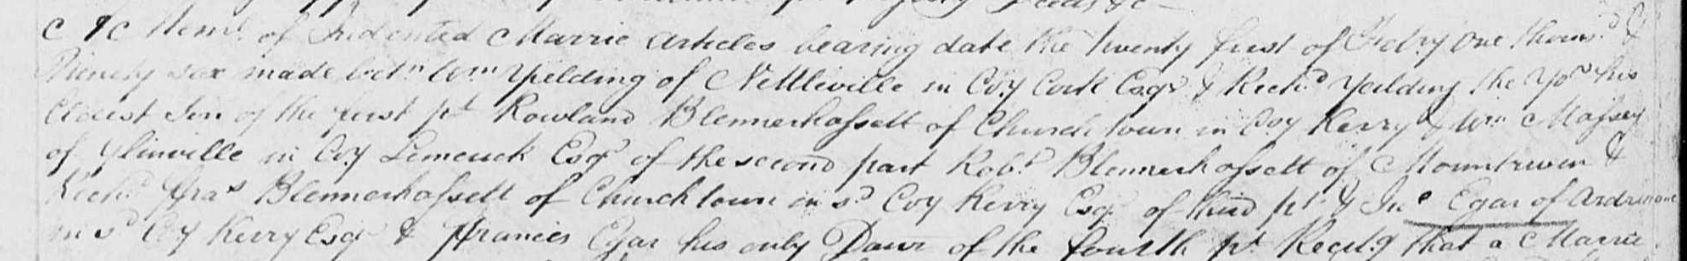 A Meml. of Indented Marrie Articles bearing date the twenty first of Febry One thousd. &
Ninety six made betn. Wm. Yielding of Nettleville in Coy Cork Esqr. & Richd. Yielding the Yor. his
Eldest Son of the first pt Rowland Blennerhassett of Churchtown in Coy Kerry & Wm Massey
of Glinville in Coy Limerick Esqr of the second part Robt Blennerhassett of Mountriven &
Richd. Fras Blennerhassett of Churchtown in sd. Coy Kerry Esqr of third pt & Jno Egar of
in sd Coy Kerry Esqr & Frances Egar his only Daur of the fourth pt Recitg that a Marrie